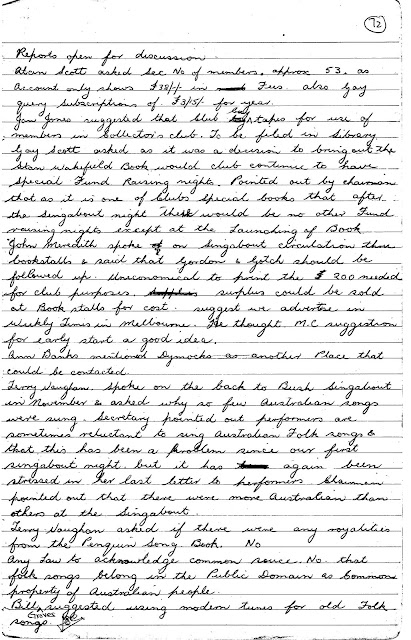 72
Reports open for discussion
Alan Scott asked Sec. No of members. approx 53. as
Account only shows in Fees also Gay
query subscriptions of for year.
Jones suggested that Club buy tapes for use of
members in Collector's club. To be filed in Library
Gay Scott asked as it was a decision to bring out the
Stan Wakefield Book would club continue to have
Special Fund Raising nights. Pointed out by chairman
that as it is one of Clubs special books that after
the Singabout night there would be no other Fund
raising nights except at the Launching of Book
John Meredith spoke on Singabout circulation thru
bookstalls & said that Gordon & Gotch should be
followed up. Uneconomical to print the 200 needed
for club purposes surplus could be sold
at Book stalls for cost. suggest we advertise in
Weekly Times in Melbourne. He thought M.C suggestion
for early start a good idea.
Ann Banks mentioned Dymocks as another Place that
could be contacted.
Terry Vaughan. Spoke on the back to Bush Singabout
in November & asked why so few Australian songs
were sung. Secretary pointed out performers are
sometimes reluctant to sing Australian Folk songs &
that this has been a problem since our first
singabout night but it has again been
stressed in her last letter to performers Chairman
pointed out that there were more Australian than
others at the Singabout.
Terry Vaughan asked if there were any royalities
from the Penguin Song Book. No
Any Law to acknowledge common source. No. that
folk songs belong in the Public Domain as Common
property of Australian people.
Bill Groves suggested using modern tunes for old Folk
songs.